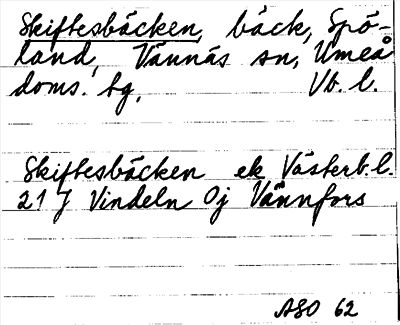 Skiftesbäcken, bäck, Spö-
land, Vännäs sn, Umeå
doms. tg, Vb. l.
Skiftesbäcken ek Västerb. l.
21 J Vindeln 0j Vännfors
ASO 62